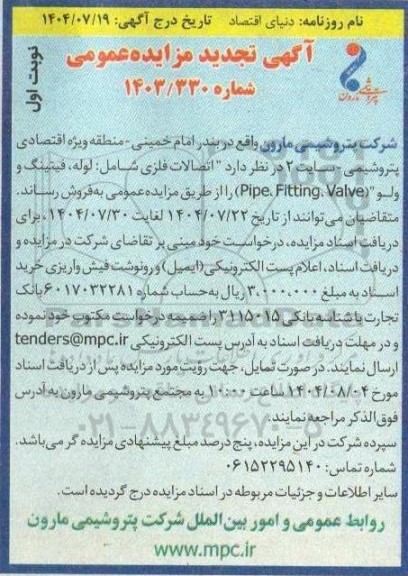 نام روزنامه: دنیای اقتصاد    تاریخ درج آگهی: ۱۴۰۴/۰۷/۱۹
آگهی تجدید مزایده عمومی
شماره ۱۴۰۳/۳۳۰
نوبت اول
پتروشیمی مارون
شرکت پتروشیمی مارون واقع در بندر امام خمینی - منطقه ویژه اقتصادی
پتروشیمی - سایت ۲ در نظر دارد " اتصالات فلزی شامل: لوله، فیتینگ و
ولو "(Pipe, Fitting, Valve) را از طریق مزایده عمومی به فروش رساند.
متقاضیان می‌توانند از تاریخ ۱۴۰۴/۰۷/۲۲ لغایت ۱۴۰۴/۰۷/۳۰، برای
دریافت اسناد مزایده، درخواست خود مبنی بر تقاضای شرکت در مزایده و
دریافت اسناد، اعلام پست الکترونیکی (ایمیل) و رونوشت فیش واریزی خرید
اسناد به مبلغ ۳,۰۰۰,۰۰۰ ریال به حساب شماره ۶۰۱۷۰۳۲۲۸۱ بانک
تجارت با شناسه بانکی ۳۱۱۵۰۱۵ را ضمیمه درخواست مکتوب خود نموده
و در مهلت دریافت اسناد به آدرس پست الکترونیکی tenders@mpc.ir
ارسال نمایند. در صورت تمایل، جهت رؤیت مورد مزایده پس از دریافت اسناد
مورخ ۱۴۰۴/۰۸/۰۴ ساعت ۱۰:۰۰ به مجتمع پتروشیمی مارون به آدرس
فوق‌الذکر مراجعه نمایند.
سپرده شرکت در این مزایده، پنج درصد مبلغ پیشنهادی مزایده گر می‌باشد.
شماره تماس: ۰۶۱۵۲۲۹۵۱۴۰
سایر اطلاعات و جزئیات مربوطه در اسناد مزایده درج گردیده است.
روابط عمومی و امور بین الملل شرکت پتروشیمی مارون
www.mpc.ir
ParsNamadData
۰۲۱-۸۸۳۴۹۶۷۰-۵